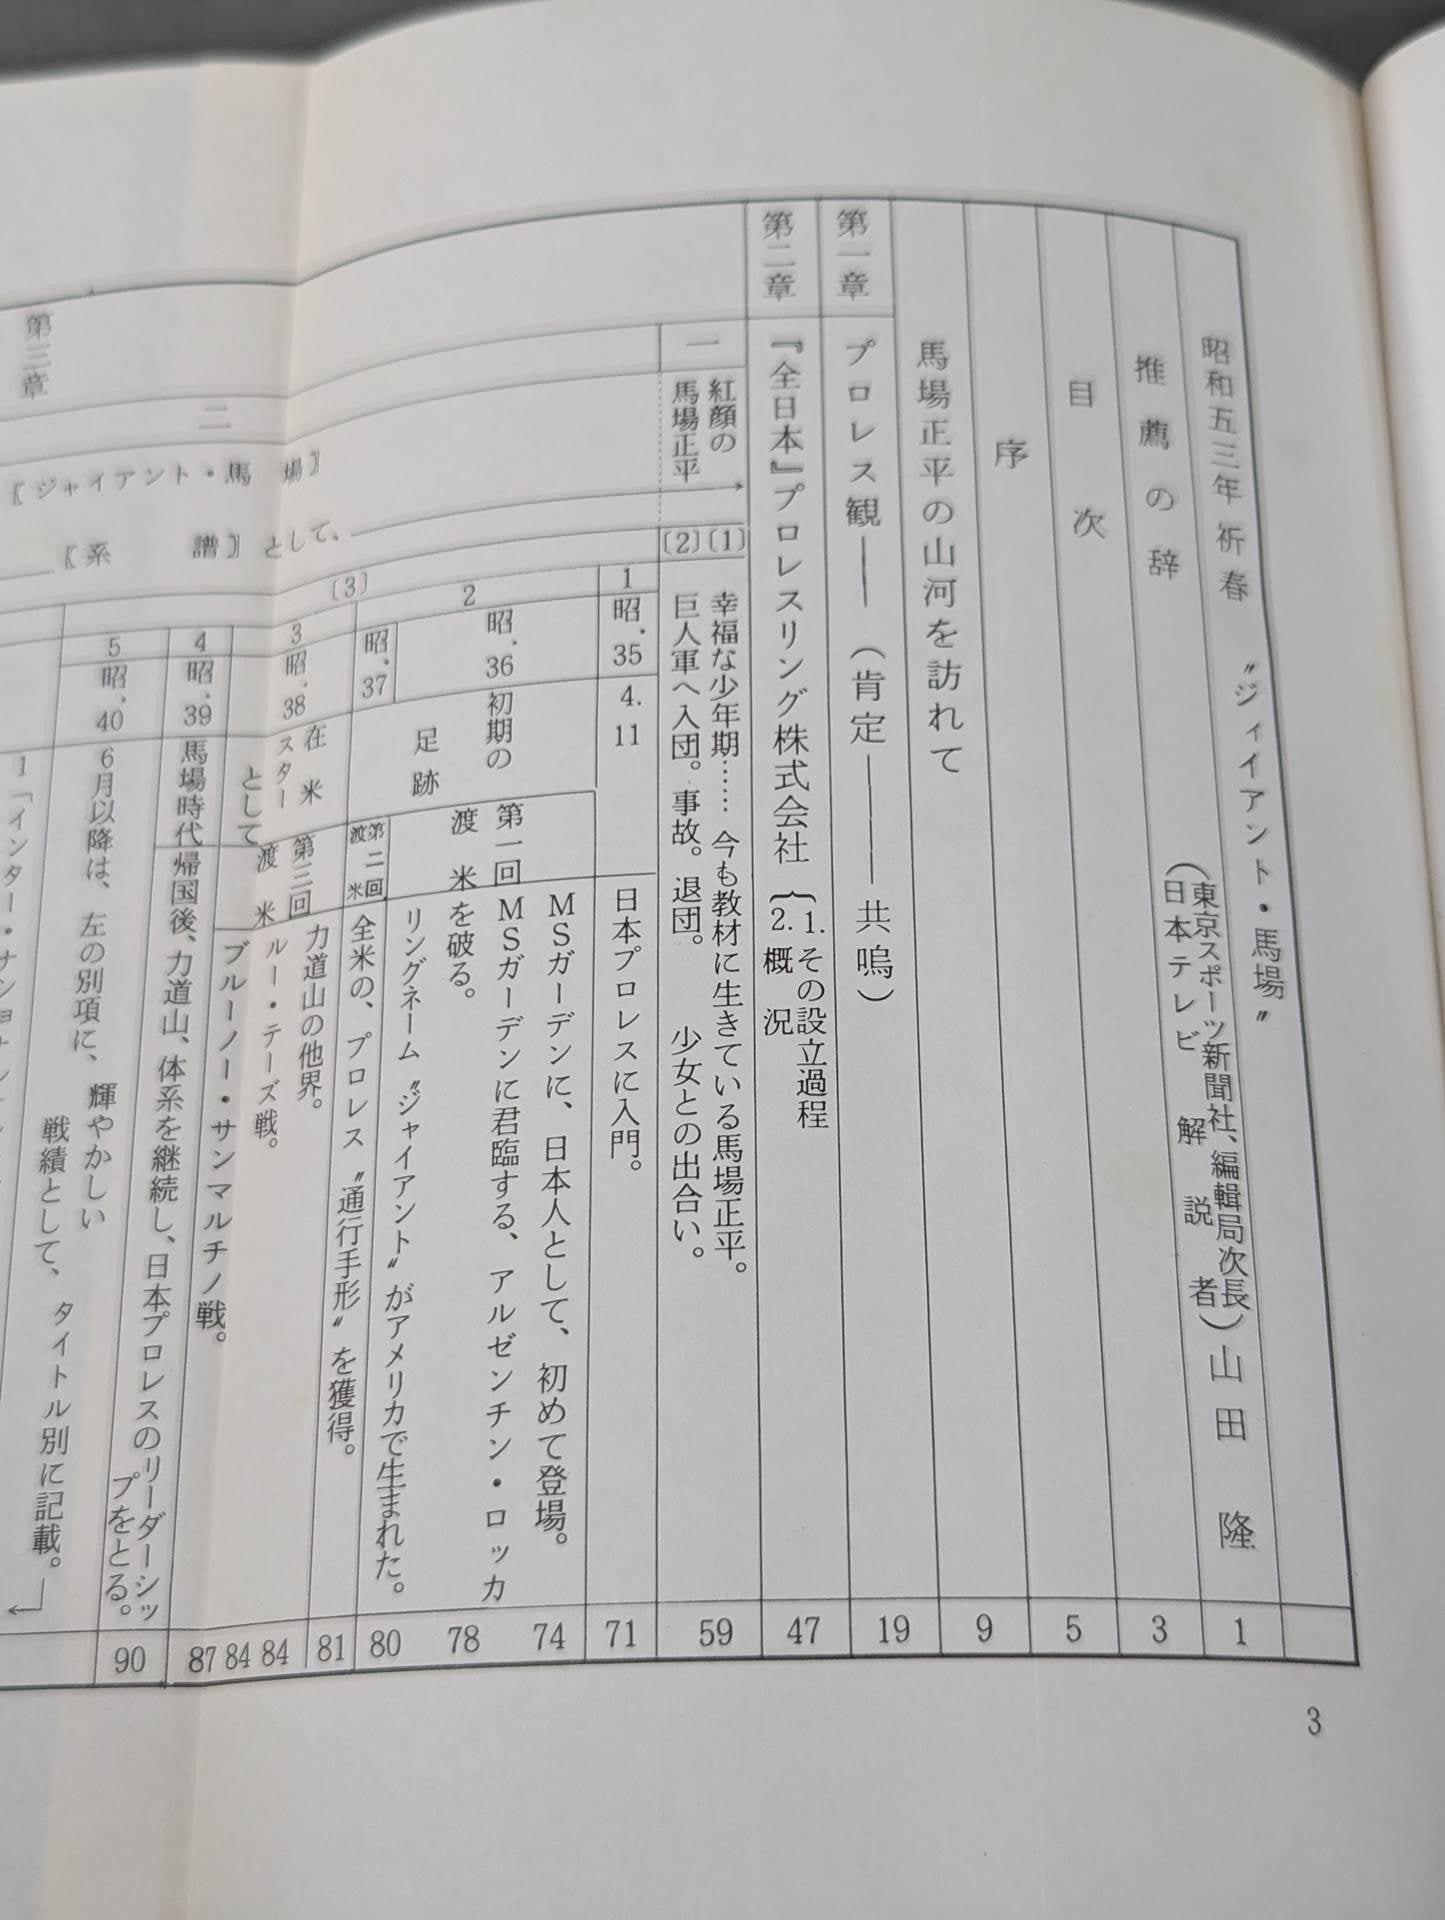 昭和五三年 祈春 〝ジィイアント・馬場〟 1
推薦の辞 (東京スポーツ新聞社、編輯局次長
日本テレビ 解説者) 山田 隆 3
目次 5
序 9
馬場正平の山河を訪れて
第一章 プロレス観――(肯定――――共鳴) 19
第二章 『全日本』プロレスリング株式会社 1. その設立過程
2. 概況 47
第三章
一 紅顔の
馬場正平
(1) 幸福な少年期…… 今も教材に生きている馬場正平。 59
(2) 巨人軍へ入団。事故。退団。 少女との出合い。
二
〖ジャイアント・馬場〗
〖系譜〗 として、
(3)
1 昭. 35 4. 11 日本プロレスに入門。 71
2 昭. 36 初期の
足跡
第一回
渡米
MSガーデンに、日本人として、初めて登場。 74
MSガーデンに君臨する、アルゼンチン・ロッカ
を破る。 78
リングネーム〝ジャイアント〟がアメリカで生まれた。 80
昭. 37 第二回
渡米 全米の、プロレス〝通行手形〟を獲得。 81
3 昭. 38 在米
スター
として
第三回
渡米
力道山の他界。 84
ルー・テーズ戦。 84
ブルーノー・サンマルチノ戦。 87
4 昭. 39 馬場時代 帰国後、力道山、体系を継続し、日本プロレスのリーダーシッ
プをとる。 90
5 昭. 40 6月以降は、左の別項に、輝やかしい
戦績として、タイトル別に記載。
3